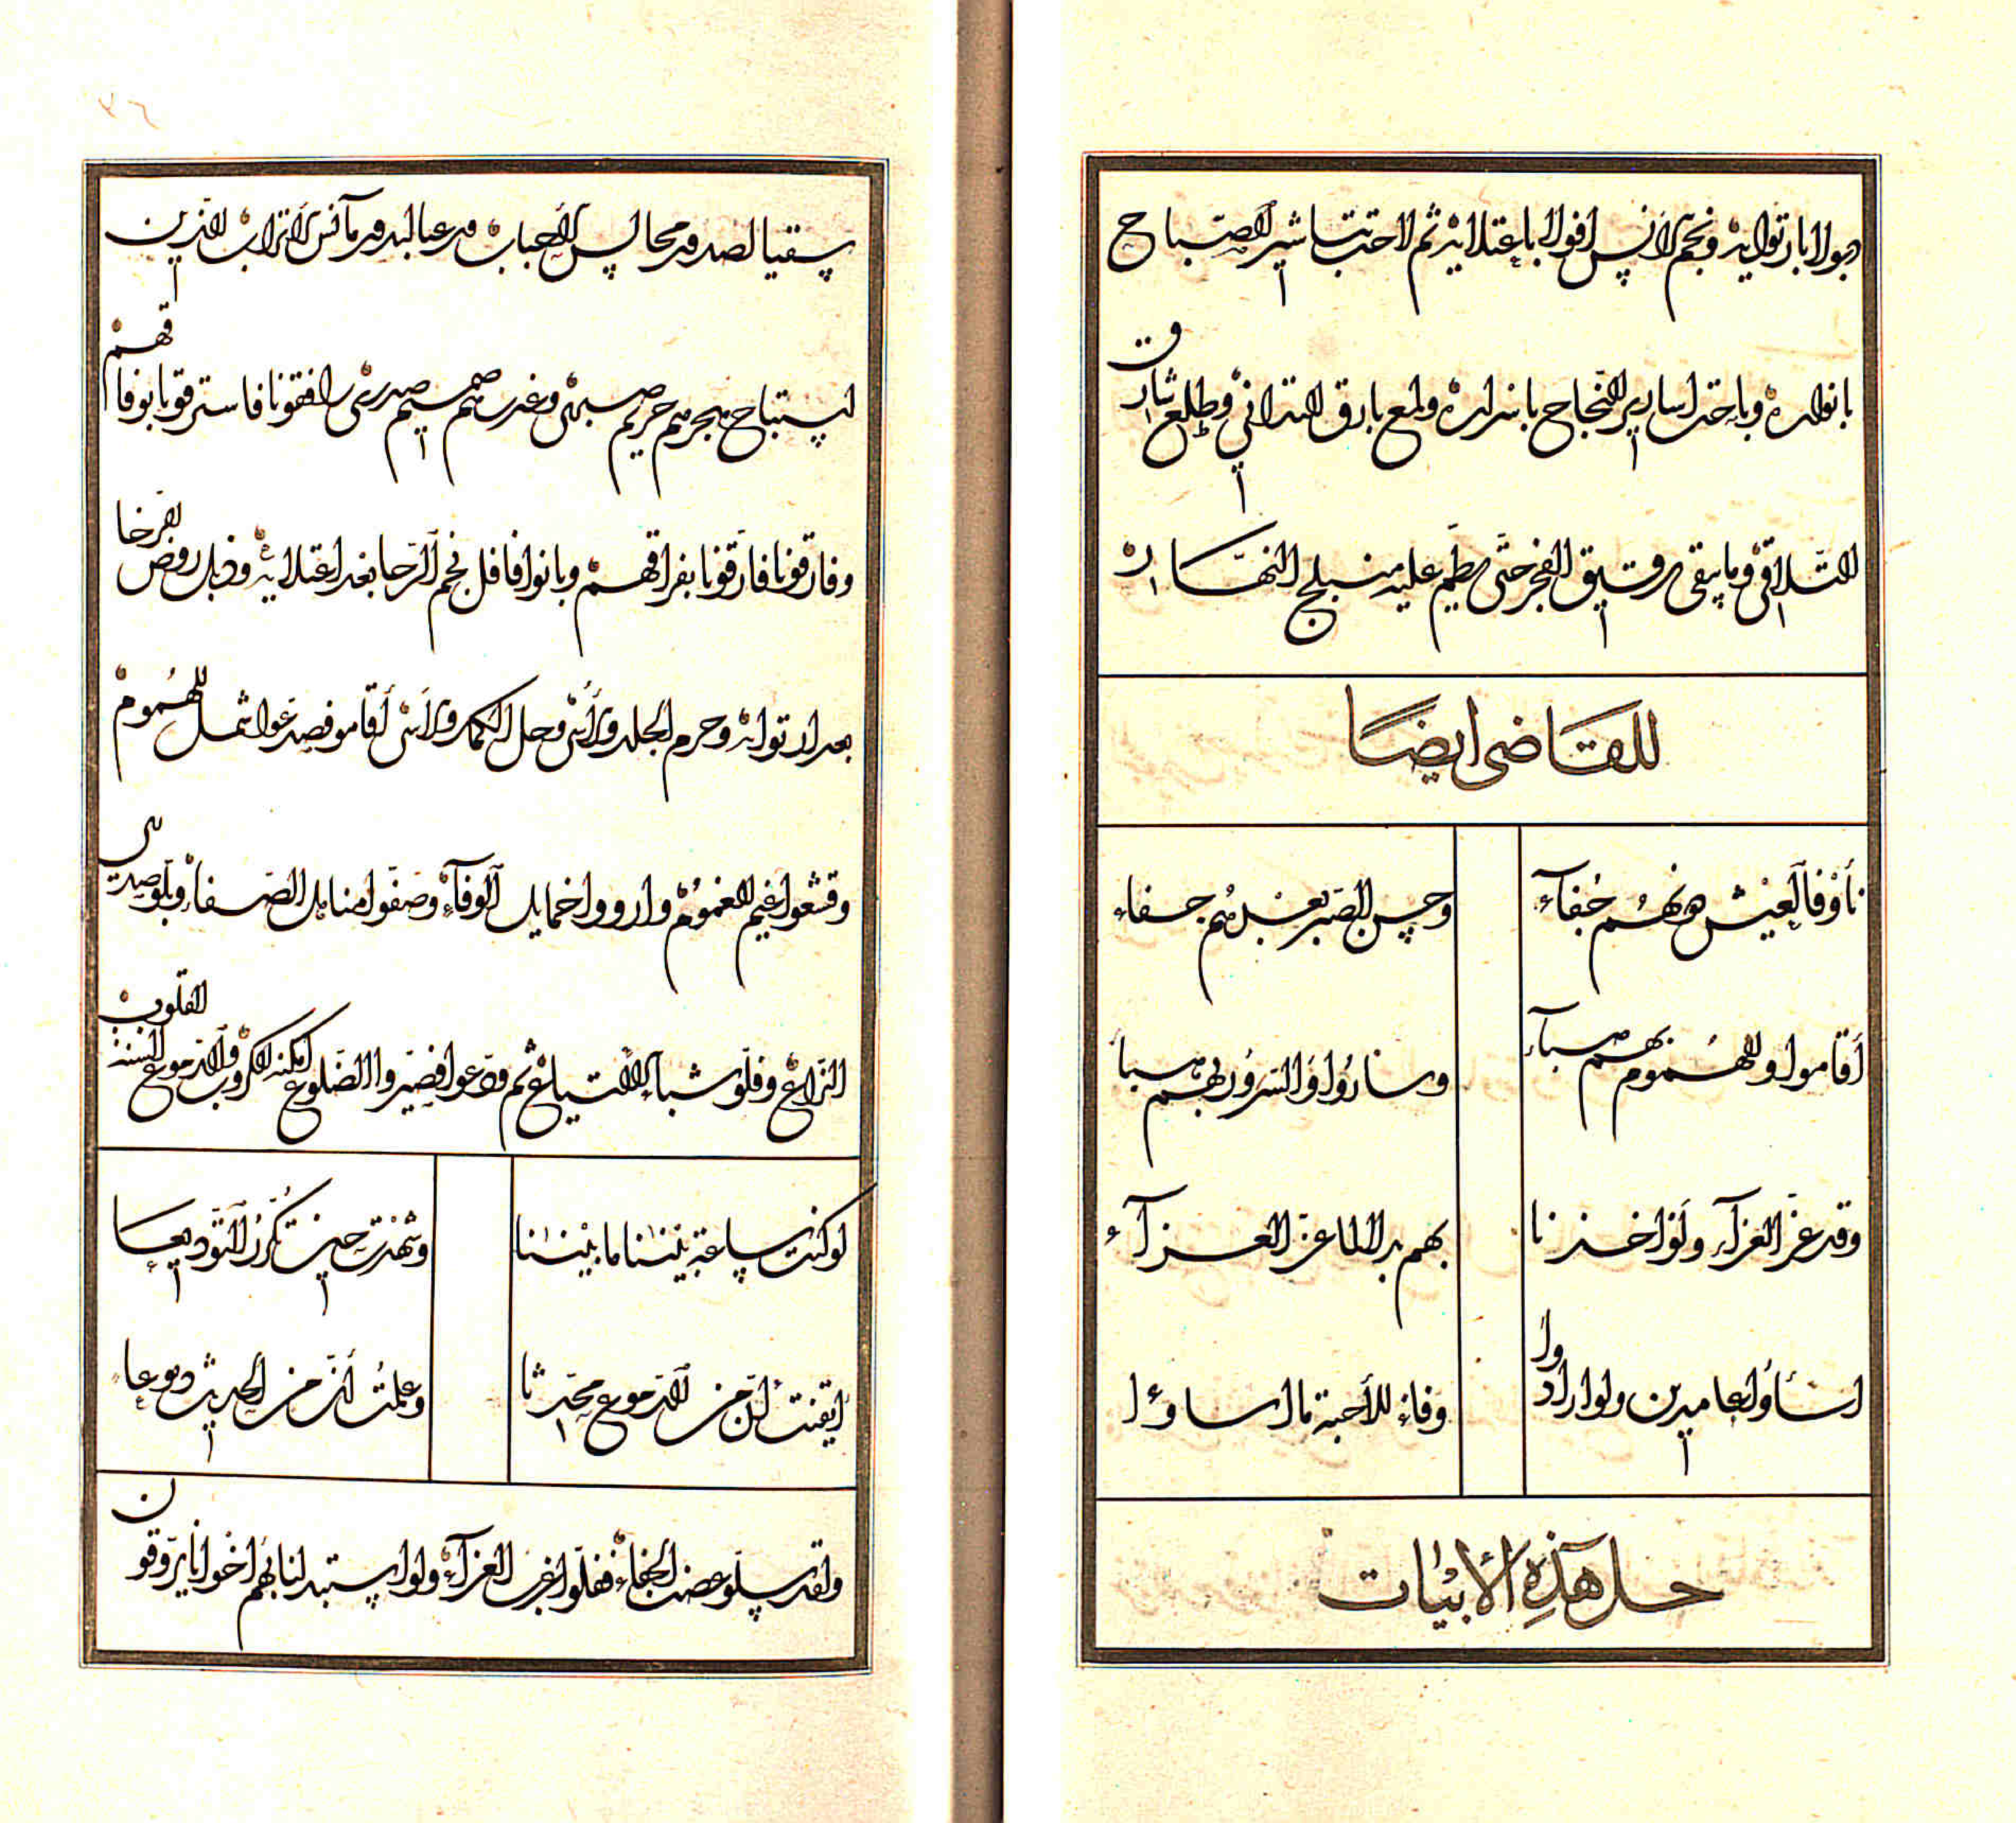 ذبولا بارتوايه ونجم الانس افولا باعتلايه ثم لاحت تباشير الصباح
بانواره وباحت اسارير النجاح باسراره ولمع بارق التداني وطلع شارق
التلاقي وما يبقى رونق الفجر حتى يطم عليه منبلج النهار
للقاضي ايضا
نأوا فالعيش بعدهم جفاء
وحسن الصبر بعدهم جفاء
أقاموا والهموم بهم هباء
وساروا والسرور بهم هبا
وقد عز العزآء ولو اخذنا
بهم بدلا لما عز العزآء
اساؤا عامدين ولو ارادوا
وفاء للاحبة ما اساؤا
حل هذه الأبيات
سقيا لصدور مجالس الأحباب ورعيا لبدور مآنس الأتراب الذين
استباح هجرهم حريم صبري وغدرهم صميم صدري رافقونا فاسترقونا بوفاقهم
وفارقونا فأرقونا بفراقهم وبانوا فافل نجم الرجا بعد اعتلائه وذبل روض الرخا
بعد ارتوائه وحرم الجلد والأسى وحل الكمد والأسى أقاموا فصدعوا شمل الهموم
وقشعوا غيم الغموم وارووا خمايل الوفآء وصفوا مناهل الصفاء وبلوا صدى
النزاع وفلوا شبا الالتياع ثم ودعوا فصيروا الضلوع امكنة الكروب والدموع السنة القلوب
لو كنت ساعة بيننا ما بيننا
وشهدت حين تكرر التوديعا
ايقنت ان من الدموع محدثا
وعلمت أن من الحديث دموعا
ولقد سلوا عضب الجفاء ففلوا غرب العزآء ولو استبدلنا بهم اخوانا يروقون